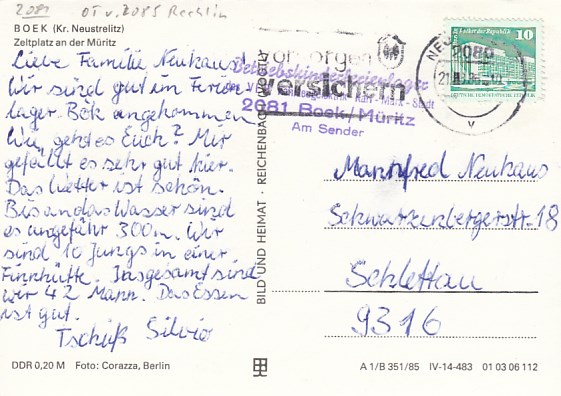 2081 OT v. 2085 Rechlin
BOEK (Kr. Neustrelitz)
Zeltplatz an der Müritz
Liebe Familie Neuhaus!
Wir sind gut im Ferien
lager Bök angekommen
Wie geht es Euch? Mir
gefällt es sehr gut hier.
Das Wetter ist schön.
Bis an das Wasser sind
es ungefähr 300m. Wir
sind 10 Jungs in einer
Finnhütte. Insgesamt sind
wir 42 Mann. Das Essen
ist gut.
Tschüß Silvio
DDR 0,20 M Foto: Corazza, Berlin
BILD UND HEIMAT · REICHENBACH (VOGTL)
vorsorgen
versichern
Betriebskinderferienlager
Karl-Marx-Stadt
2081 Boek/Müritz
Am Sender
2080
v
10
DEUTSCHE DEMOKRATISCHE REPUBLIK
Mannfred Neuhaus
Schwarzenbergerstr. 18
Schlettau
9316
A 1/B 351/85 IV-14-483 01 03 06 112